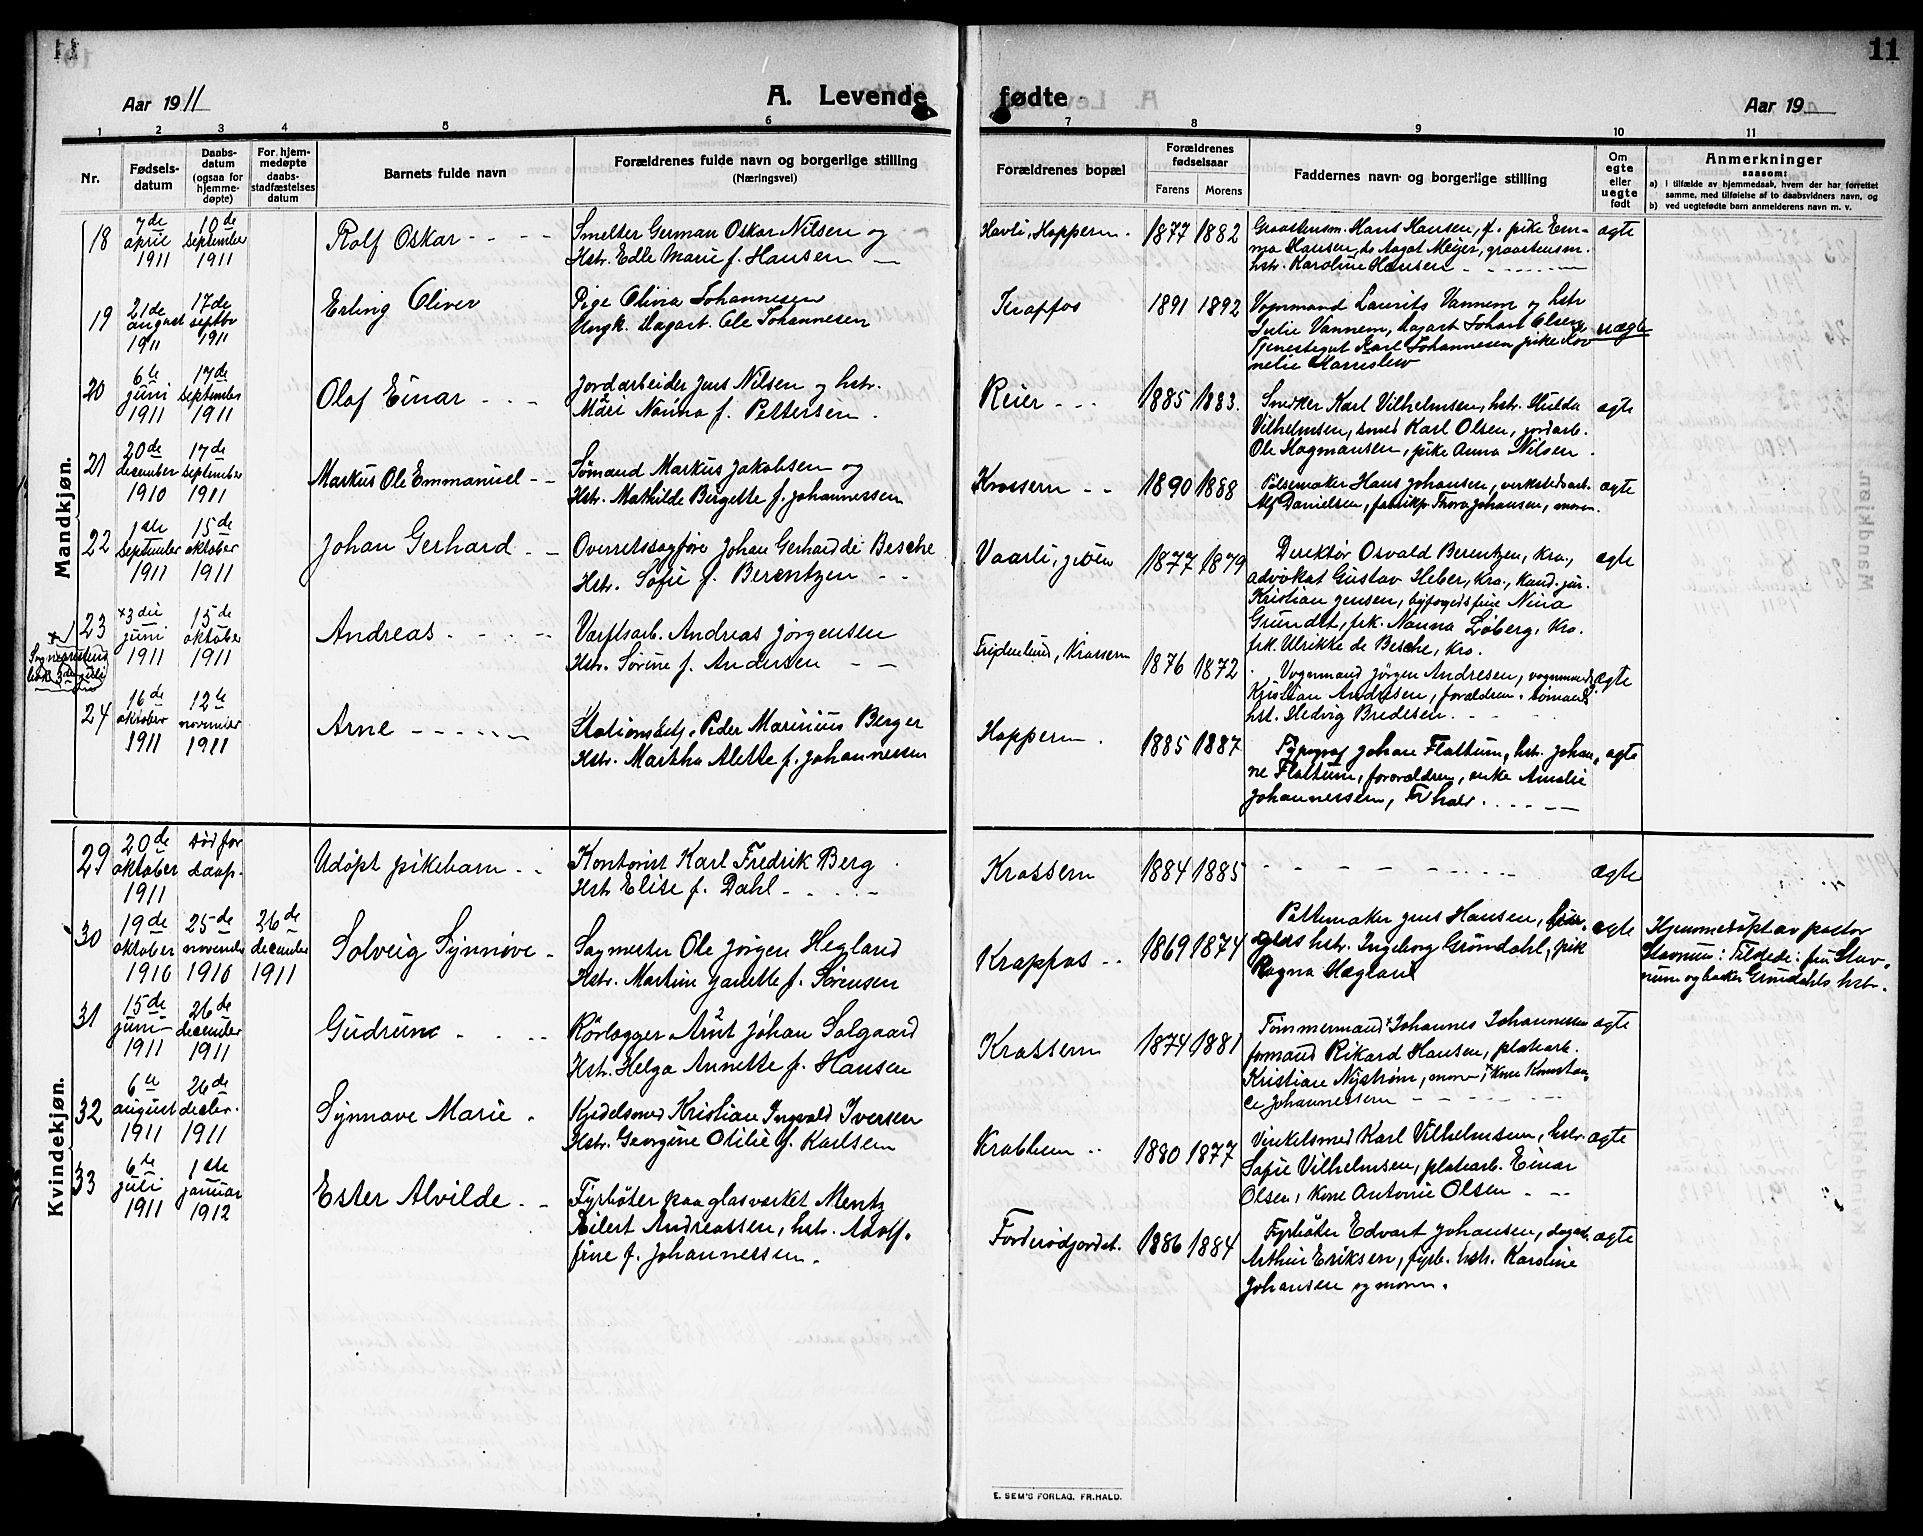 11
Aar 1911
A. Levende
1 2 3 4 5 6
Nr.
Fødsels-
datum
Daabs-
datum
(ogsaa for
hjemme-
døpte)
For hjem-
medøpte
daabs-
stadfæstelses
datum
Barnets fulde navn
Forældrenes fulde navn og borgerlige stilling
(Næringsvei)
Mandkjøn.
18 7de april 1911 10de september 1911 Rolf Oskar
Smelter German Oskar Nilsen og
Hstr. Edle Marie f. Hansen
19 21de august 1911 17de septbr 1911 Erling Oliver
Pige Olivia Johannesen
Ungk. Dagarb. Ole Johannesen
20 6te juni 1911 17de september 1911 Olaf Einar
Jordarbeider Jens Nilsen og hstr.
Mari Nanna f. Pettersen
21 20de december 1910 17de september 1911 Markus Ole Emmanuel
Sømand Markus Jakobsen og
Hstr. Mathilde Bergette f. Johannessen
22 1ste september 1911 15de oktober 1911 Johan Gerhard
Overretssagføre Johan Gerhard de Besche
Hstr. Sofie f. Berentzen
23 3die juni 1911 15de oktober 1911 Andreas
Varftsarb. Andreas Jørgensen
Hstr. Sørine f. Andersen
24 16de oktober 1911 12te november 1911 Arne
Stationsbetj. Peder Marinius Berger
Hstr. Martha Alette f. Johannessen
Kvindekjøn.
29 20de oktober 1911 død før daap. Udøpt pikebarn
Kontorist Karl Fredrik Berg
Hstr. Elise f. Dahl
30 19de oktober 1910 25de november 1910 26de december 1911 Solveig Synnøve
Sagmester Ole Jørgen Hegland
Hstr. Martine Janette f. Sørensen
31 15de juni 1911 26de december 1911 Gudrun
Rørlægger Arnt Johan Solgaard
Hstr. Helga Annette f. Hansen
32 6te august 1911 26de decbr. 1911 Synnøve Marie
Kjedelsmed Kristian Ingvald Iversen
Hstr. Georgine Otilie f. Karlsen
33 6te juli 1911 1ste januar 1912 Ester Alvilde
Fyrbøter paa glasverket Mentz
Eilert Andreassen, hstr. Adolf-
fine f. Johannessen.
11
fødte
Aar 19
7 8 9 10 11
Forældrenes bopæl
Forældrenes
fødselsaar
Farens Morens
Faddernes navn og borgerlige stilling
Om
egte
eller
uegte
født
Anmerkninger
saasom:
a) i tilfælde av hjemmedaab, hvem der har forrettet
samme, med tilføielse af to daabsvidners navn, og
b) ved uegtefødte barn anmelderens navn m. v.
Havli, Hoppern. 1877 1882
Graastensm. Hans Hansen, f. pike Em-
ma Hansen, do Aagot Meyer, graastensm.
hstr. Karoline Hansen
ægte
Krapfos 1891 1892
Vognmand Laurits Vannem og hstr
Julie Vannem, dagarb. Johan Olsen,
Tjenestegut Karl Johannesen pike
uægte
Reier 1885 1883.
Snedker Karl Vilhelmsen, hstr. Hulda
Vilhelmsen, smed Karl Olsen, jordarb.
Ole Hagmansen, pike Anna Nilsen
ægte
Krossern 1890 1888
Pølsemaker Hans Johansen, verkstedsarb.
Alf Danielsen, fabrikp. Thora Johansen, moren.
ægte
Vaarli, Jeløen 1877 1879
Direktør Osvald Berentzen, Kra.,
advokat Gustav Heber, Kra., kand. jur.
Kristian Jensen, byfogedfrue Nina
Grundt, frk. Nanna Løberg, Kra.
frk. Ulrikke de Besche, Kra.
ægte
Fripleelund, Krossern 1876 1872
Vognmand Jørgen Andresen, vognmand
Kristian Andresen, forældrene, sømands
hst. Hedvig Bredesen
ægte
Hoppern. 1885 1887
Typograf Johan Flattum, hstr. Johan-
ne Flattum, forældrene, enke Amalie
Johannessen, Fr.hald
ægte
Krossern 1884 1885
ægte
Krapfos 1869 1874
Pottemaker Jens Hansen,
hstr. Ingeborg Grøndahl, pike
Ragna Hegland
ægte
Hjemmedøpt av pastor
Stavnum: Tilstede: fru Stav-
num og baker Grøndahls hstr.
Krossern 1874 1881
Tømmermand Johannes Johannessen
formand Rikard Hansen, platearb.
Kristian Nystrøm, moren, Kone Konstan-
ce Johannessen
ægte
Krabbern 1880 1877
Vinkelsmed Karl Vilhelmsen, hstr
Sofie Vilhelmsen, platearb. Einar
Olsen, Kone Antonie Olsen
ægte
Forderødjordet. 1886 1884
Fyrbøter Edvart Johansen, dagarb.
Arthur Eriksen, fyrb. hstr. Karoline
Johansen og moren.
ægte
E. SEM'S FORLAG, FR.HALD.